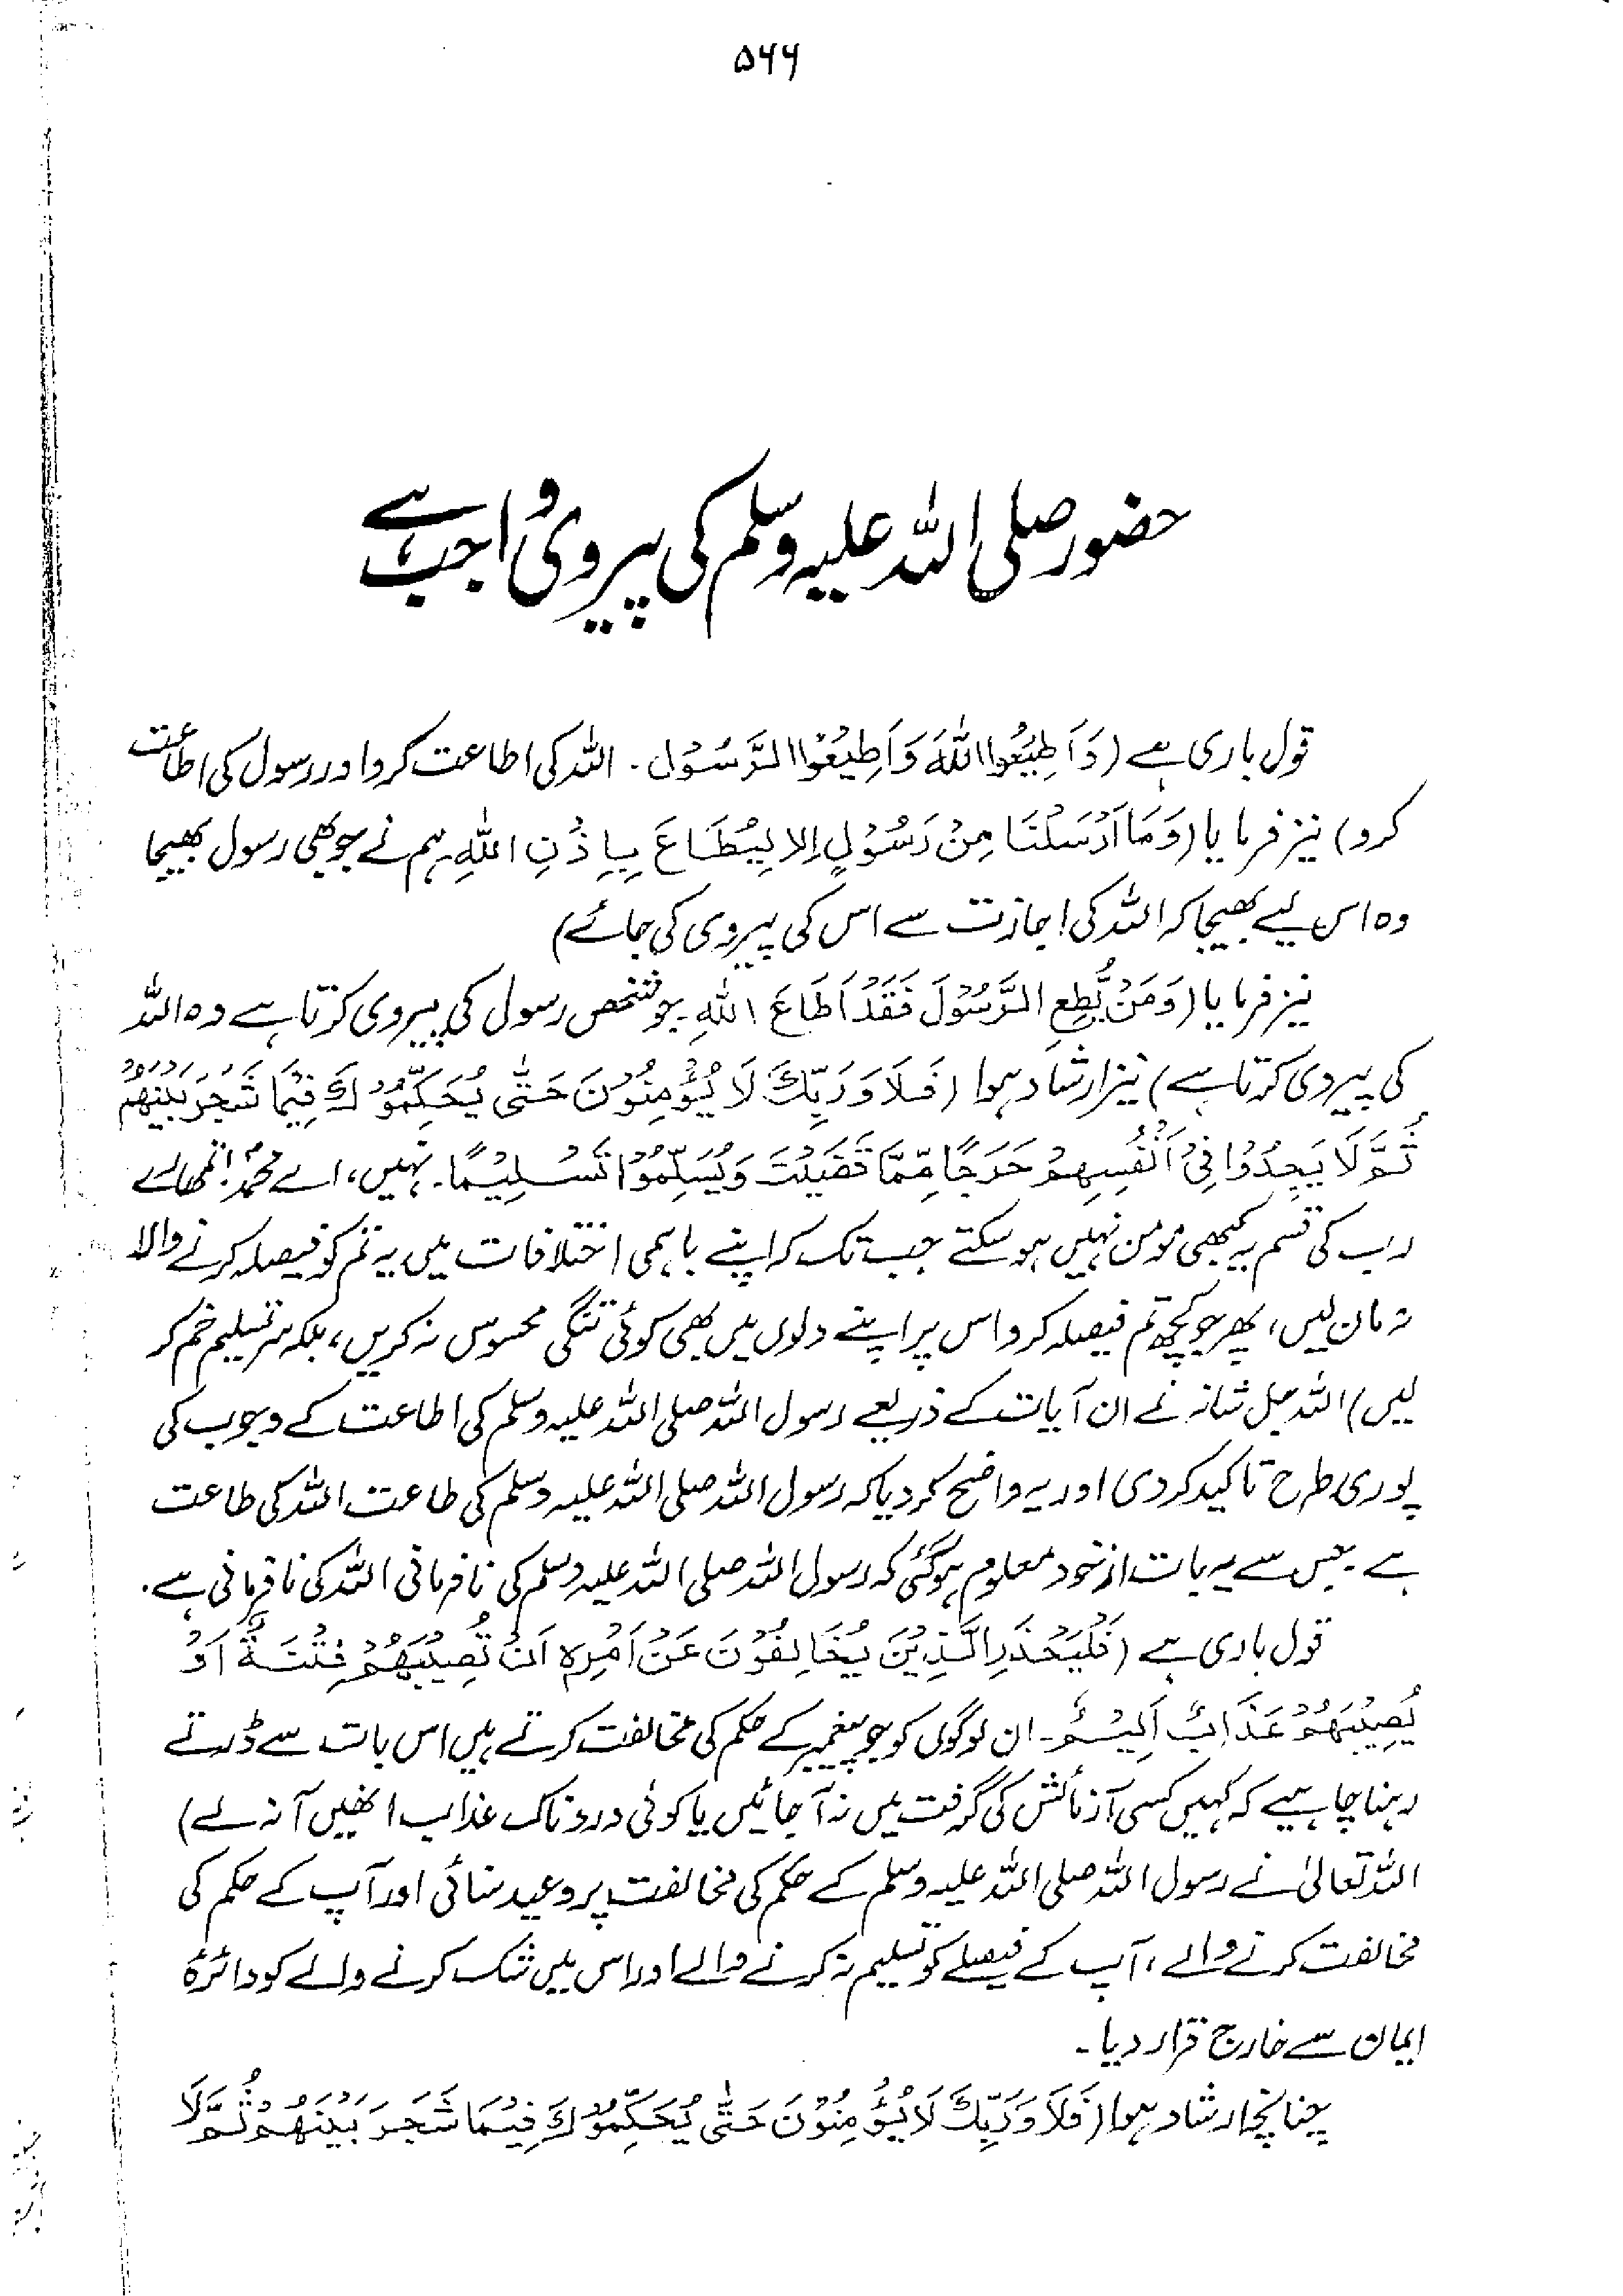 ۵۶۶
حضور صلی اللہ علیہ وسلم کی پیروی واجب ہے
قول باری ہے (وَاَطِیْعُوا اللّٰهَ وَاَطِیْعُوْا الرَّسُوْل۔ اللہ کی اطاعت کرو اور رسول کی اطاعت
کرو) نیز فرمایا (وَمَا اَرْسَلْنَا مِنْ رَسُوْلٍ اِلا لِیُطَاعَ بِاِذْنِ اللّٰهِ۔ ہم نے جو بھی رسول بھیجا
وہ اس لیے بھیجا کہ اللہ کی اجازت سے اس کی پیروی کی جائے)
نیز فرمایا (وَمَنْ یُّطِعِ الرَّسُوْلَ فَقَدْ اَطَاعَ اللّٰهِ۔ جو شخص رسول کی پیروی کرتا ہے وہ اللہ
کی پیروی کرتا ہے) نیز ارشاد ہوا (فَلَا وَرَبِّكَ لَا یُؤْمِنُوْنَ حَتّٰی یُحَكِّمُوْكَ فِیْمَا شَجَرَ بَیْنَهُمْ
ثُمَّ لَا یَجِدُوْا فِیْ اَنْفُسِهِمْ حَرَجًا مِّمَّا قَضَیْتَ وَیُسَلِّمُوْا تَسْلِیْمًا۔ نہیں، اے محمدؐ! تمھارے
رب کی قسم یہ کبھی مومن نہیں ہو سکتے جب تک کہ اپنے باہمی اختلافات میں یہ تم کو فیصلہ کرنے والا
نہ مان لیں، پھر جو کچھ تم فیصلہ کرو اس پر اپنے دلوں میں بھی کوئی تنگی محسوس نہ کریں، بلکہ سر تسلیم خم کر
لیں) اللہ جل شانہ نے ان آیات کے ذریعے رسول اللہ صلی اللہ علیہ وسلم کی اطاعت کے وجوب کی
پوری طرح تاکید کر دی اور یہ واضح کر دیا کہ رسول اللہ صلی اللہ علیہ وسلم کی طاعت اللہ کی طاعت
ہے۔ جس سے یہ بات ازخود معلوم ہو گئی کہ رسول اللہ صلی اللہ علیہ وسلم کی نافرمانی اللہ کی نافرمانی ہے۔
قول باری ہے (فَلْیَحْذَرِ الَّذِیْنَ یُخَالِفُوْنَ عَنْ اَمْرِهٖ اَنْ تُصِیْبَهُمْ فِتْنَةٌ اَوْ
یُصِیْبَهُمْ عَذَابٌ اَلِیْمٌ۔ ان لوگوں کو جو پیغمبر کے حکم کی مخالفت کرتے ہیں اس بات سے ڈرتے
رہنا چاہیے کہ کہیں کسی آزمائش کی گرفت میں نہ آ جائیں یا کوئی دردناک عذاب انھیں آ نہ لے)
اللہ تعالیٰ نے رسول اللہ صلی اللہ علیہ وسلم کے حکم کی مخالفت پر وعید سنائی اور آپ کے حکم کی
مخالفت کرنے والے، آپ کے فیصلے کو تسلیم نہ کرنے والے اور اس میں شک کرنے والے کو دائرۂ
ایمان سے خارج قرار دیا۔
چنانچہ ارشاد ہوا (فَلَا وَرَبِّكَ لَا یُؤْمِنُوْنَ حَتّٰی یُحَكِّمُوْكَ فِیْمَا شَجَرَ بَیْنَهُمْ ثُمَّ لَا